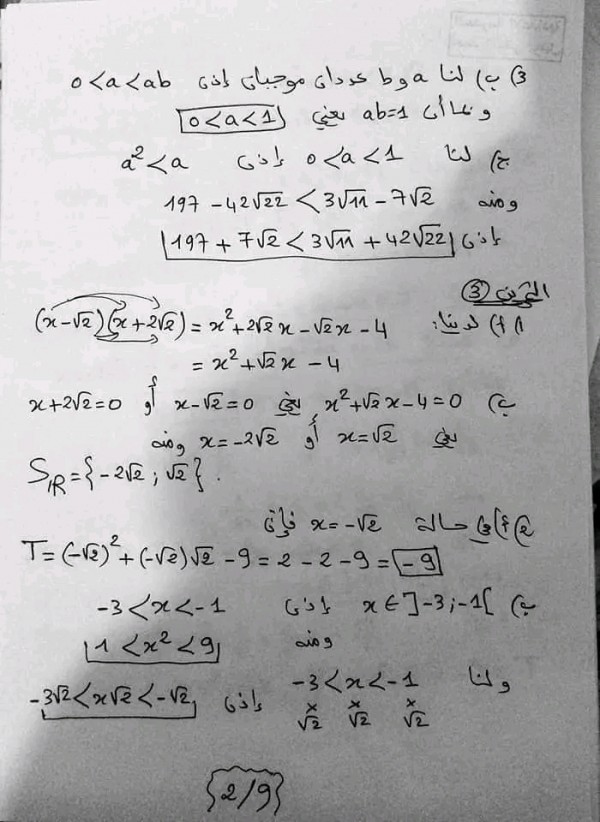 3) ب) لنا a و b عددان موجبان إذن 0<a<ab
وبما أن ab=1 يعني 0<a<1
ج) لنا 0<a<1 إذن a²<a
ومنه 197-42√22<3√11-7√2
إذن 197+7√2<3√11+42√22
التمرين (3)
1) أ) لدينا: (x-√2)(x+2√2)=x²+2√2x-√2x-4
=x²+√2x-4
ب) x²+√2x-4=0 يعني x-√2=0 أو x+2√2=0
يعني x=√2 أو x=-2√2 ومنه
S_IR={-2√2;√2}.
2) أ) في حالة x=-√2 فإن
T=(-√2)²+(-√2)√2-9=2-2-9=-9
ب) x∈]-3;-1[ إذن -3<x<-1
ومنه 1<x²<9
ولنا -3<x<-1
×√2 ×√2 ×√2
إذن -3√2<x√2<-√2
2/9